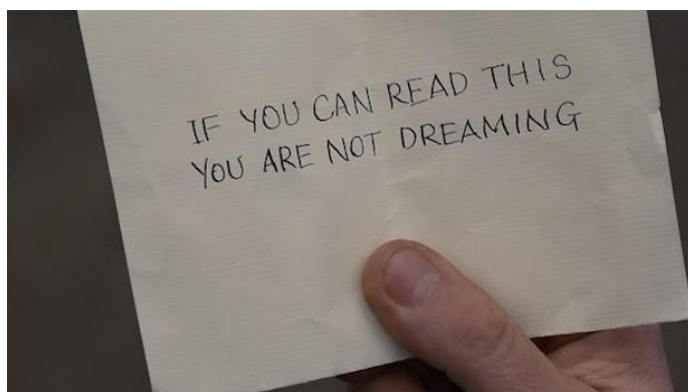 IF YOU CAN READ THIS
YOU ARE NOT DREAMING